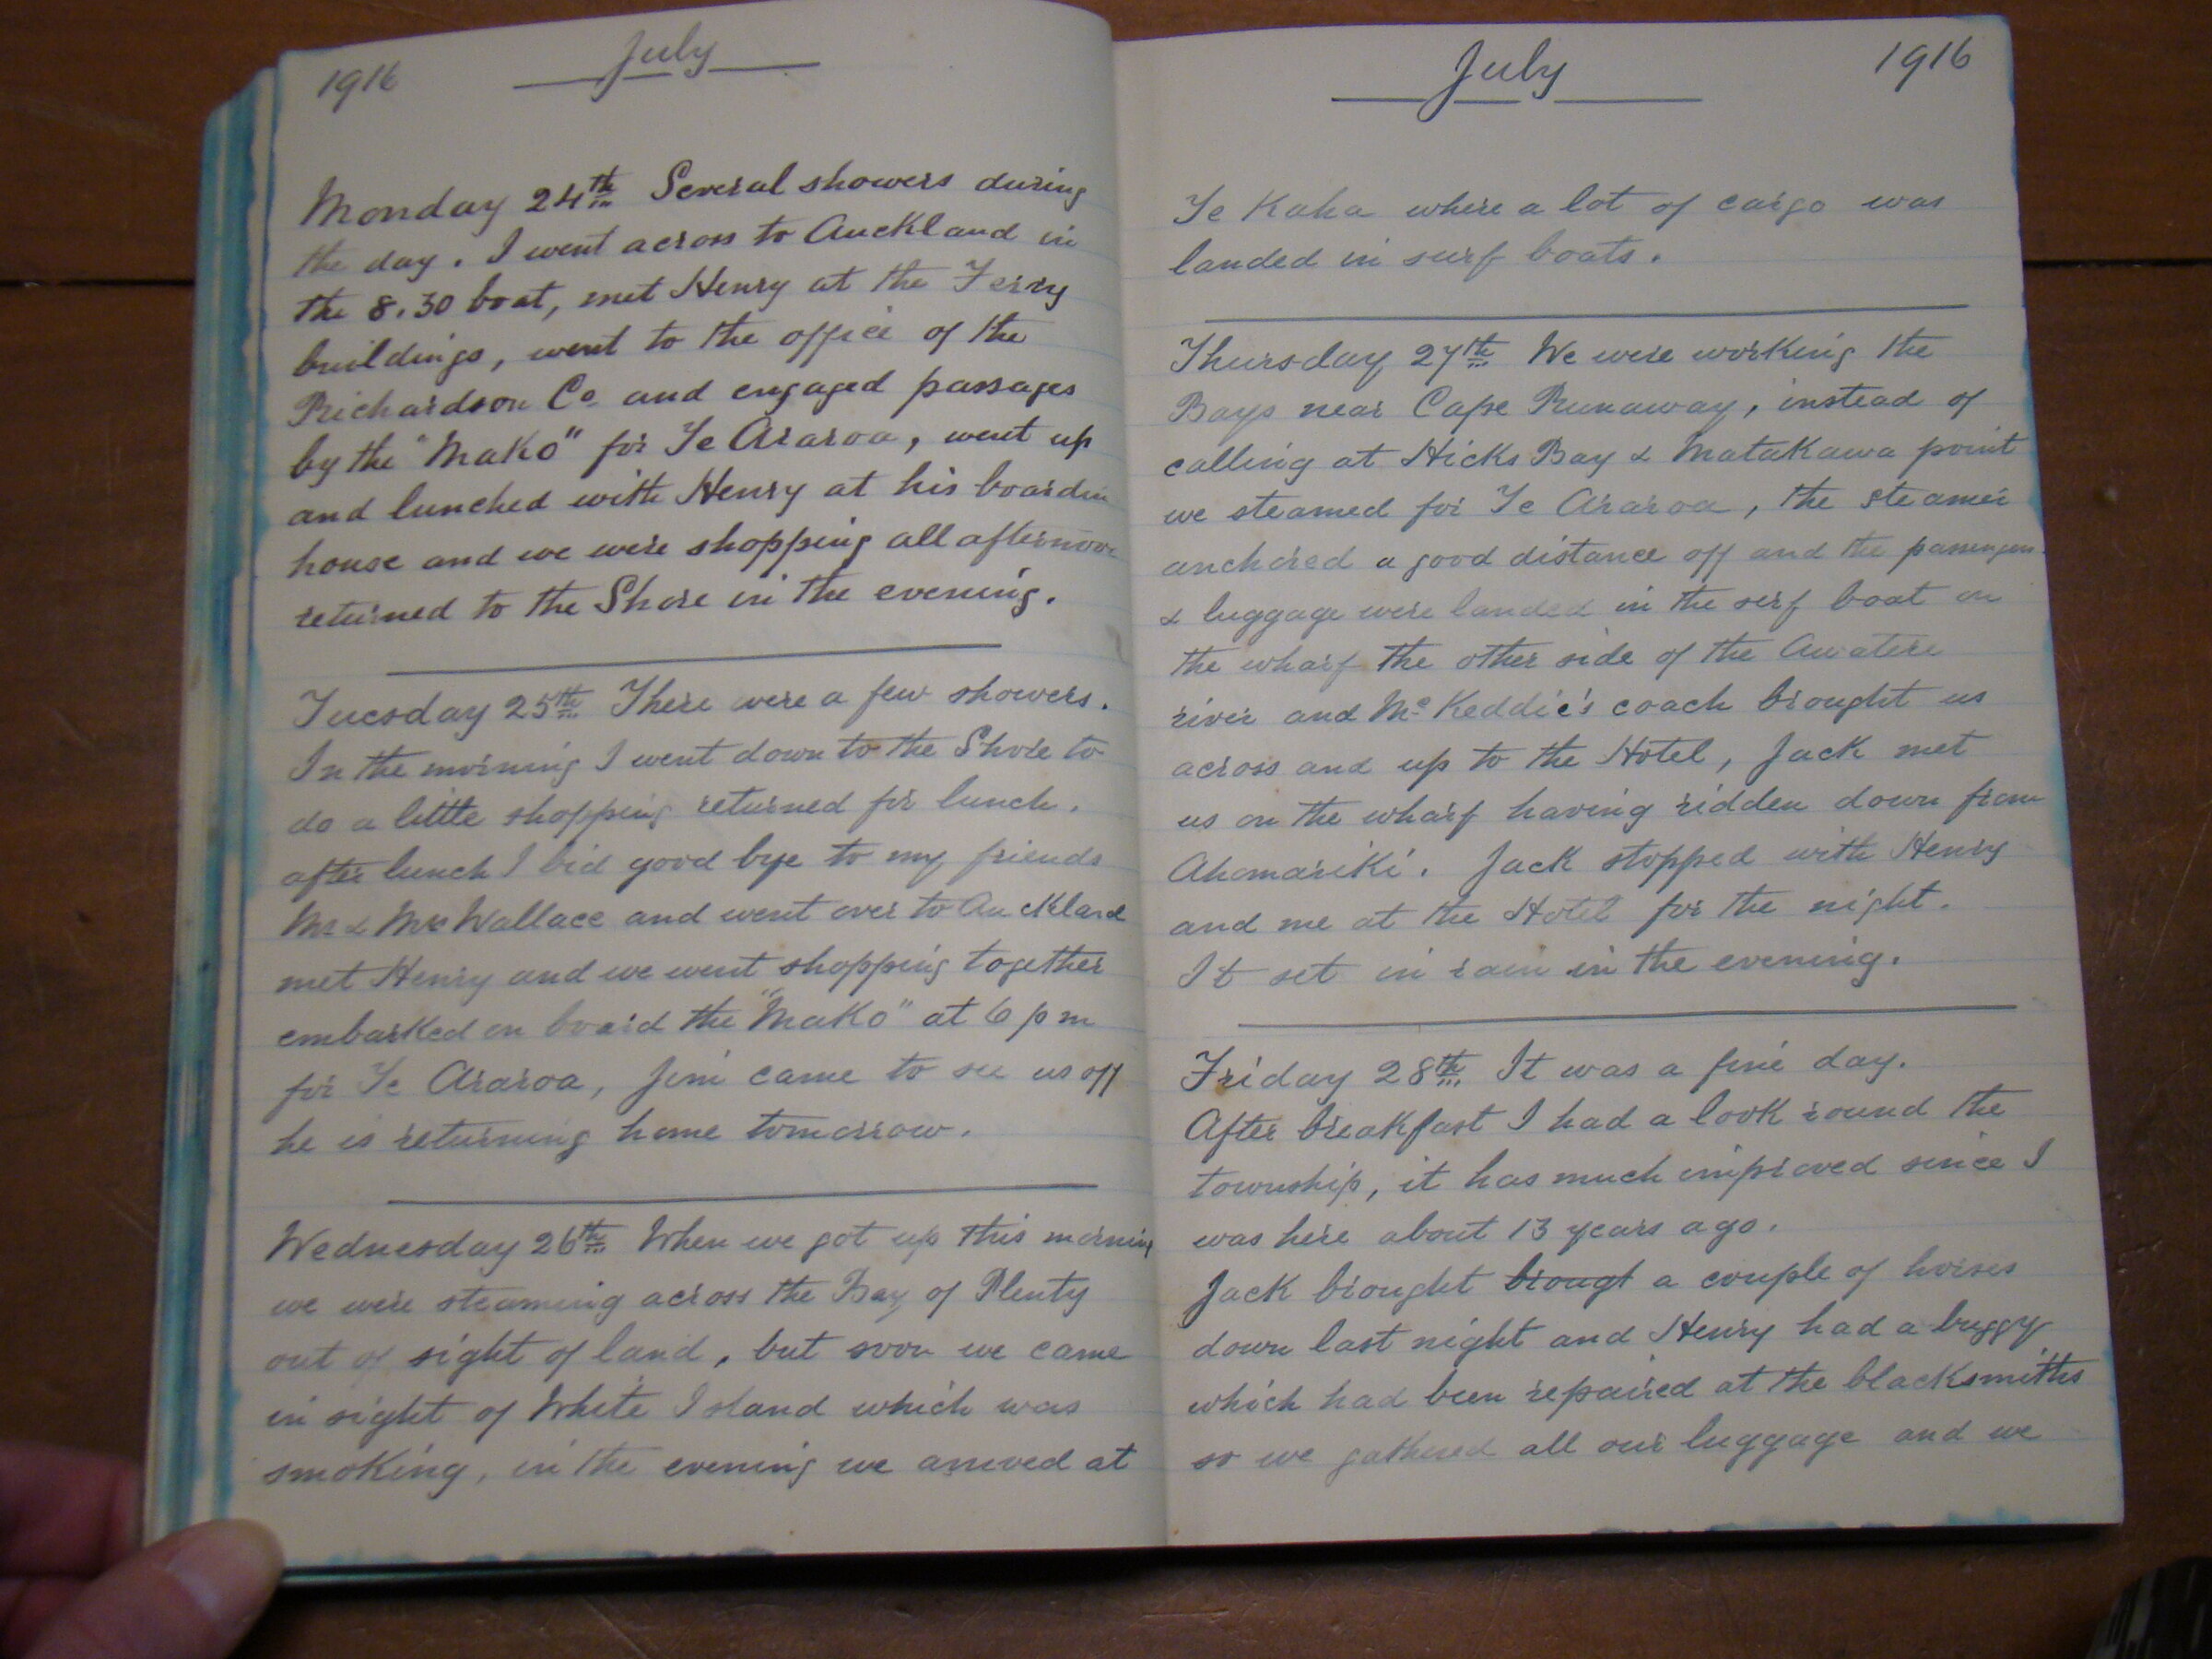 1916 July
Monday 24th Several showers during
the day. I went across to Auckland in
the 8.30 boat, met Henry at the Ferry
buildings, went to the office of the
Richardson Co and engaged passages
by the "Mako" for Te Araroa, went up
and lunched with Henry at his boardin
house and we were shopping all afternoon
returned to the Shore in the evening.
Tuesday 25th There were a few showers.
In the morning I went down to the Shore to
do a little shopping returned for lunch.
after lunch I bid good bye to my friends
Mr & Mrs Wallace and went over to Auckland
met Henry and we went shopping together
embarked on board the "Mako" at 6 pm
for Te Araroa, Jim came to see us off
he is returning home tomorrow.
Wednesday 26th When we got up this morning
we were steaming across the Bay of Plenty
out of sight of land, but soon we came
in sight of White Island which was
smoking, in the evening we arrived at
July 1916
Te Kaha where a lot of cargo was
landed in surf boats.
Thursday 27th We were working the
Bays near Cape Runaway, instead of
calling at Hicks Bay & Matakawa point
we steamed for Te Araroa, the steamer
anchored a good distance off and the passengers
& luggage were landed in the serf boat on
the wharf the other side of the Awatere
river and McKeddie's coach brought us
across and up to the Hotel, Jack met
us on the wharf having ridden down from
Ahomariki. Jack stopped with Henry
and me at the Hotel for the night.
It set in rain in the evening.
Friday 28th It was a fine day.
After breakfast I had a look round the
township, it has much improved since I
was here about 13 years ago.
Jack brought brougt a couple of horses
down last night and Henry had a buggy
which had been repaired at the blacksmiths
so we gathered all our luggage and we